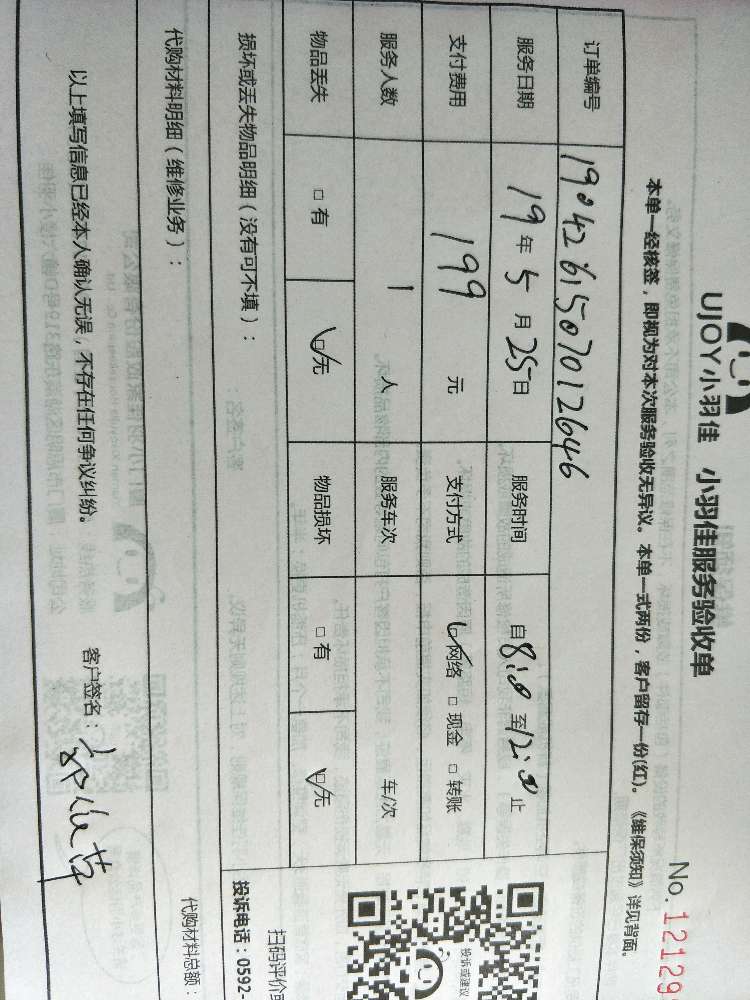 UJOY小羽佳 小羽佳服务验收单
No. 12129
本单一经核签，即视为对本次服务验收无异议。本单一式两份，客户留存一份(红)。《维保须知》详见背面。
订单编号 190426150701264 6
服务日期 19年5月25日 服务时间 自8:00至12:00止
支付费用 199 元 支付方式 ☑网络 □现金 □转账
服务人数 1 人 服务车次 车/次
物品丢失 □有 ☑无 物品损坏 □有 ☑无
损坏或丢失物品明细（没有可不填）：
代购材料明细（维修业务）：
代购材料总额：
以上填写信息已经本人确认无误，不存在任何争议纠纷。 客户签名：
投诉或建议
扫码评价或
投诉电话：0592-